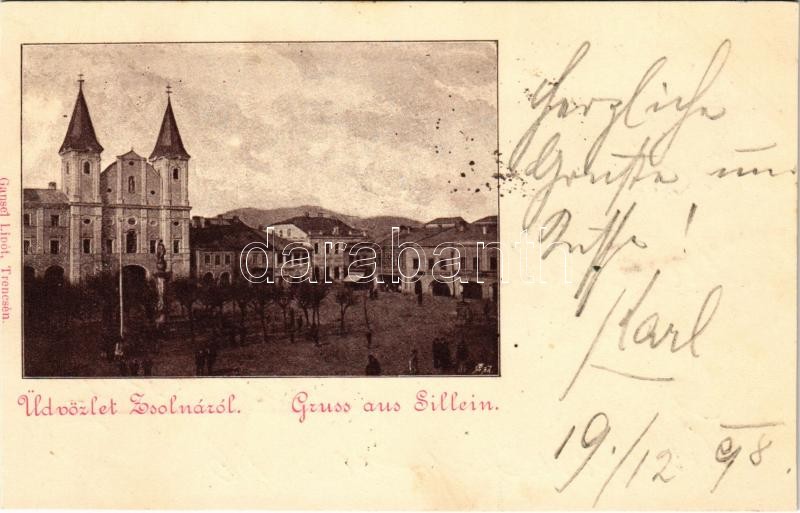 Gansel Lipót, Trencsén.
darabanth
Üdvözlet Zsolnáról. Gruss aus Sillein.
Herzliche
Grüsse un
Küsse!
Karl
19./12 98.